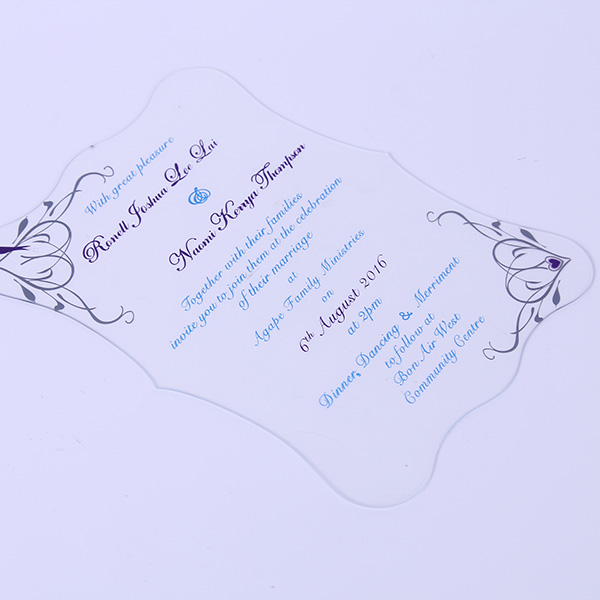 With great pleasure
Ronell Joshua Lee Lai
&
Naomi Kenya Thompson
Together with their families
invite you to join them at the celebration
of their marriage
at
Agape Family Ministries
on
6th August 2016
at 2pm
Dinner, Dancing & Merriment
to follow at
Bon Air West
Community Centre